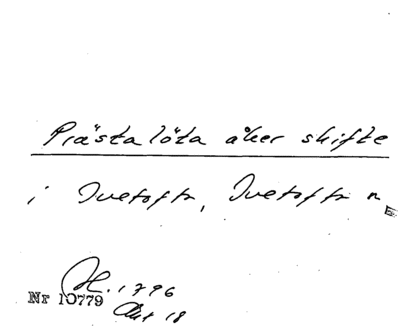 Prästalöta åker skifte
i Ivetofta, Ivetofta n
H. 1796
Nr 10779
Akt 18